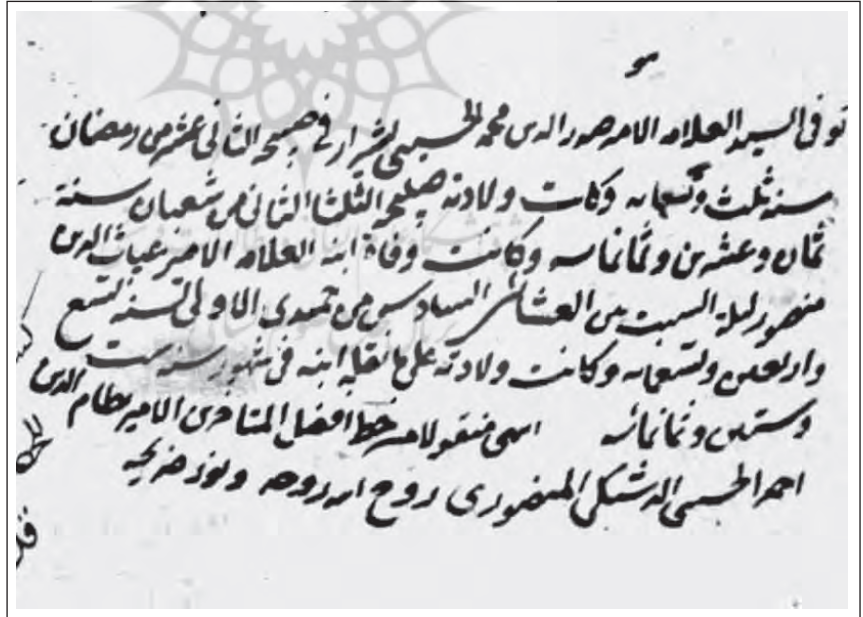 هو
توفی السید العلامه الامیر صدر الدین محمد الحسینی الشیرازی فی صبیحه الثانی عشر من رمضان
سنه ثلث و تسعمایه و کانت ولادته صبیحه الثلثا الثانی من شعبان سنة
ثمان و عشرین و ثمانمایه و کانت وفاة ابنه العلامه الامیر غیاث الدین
منصور لیلة السبت بین العشائین السادس من جمیدی الاولی لسنه تسع
و اربعین و تسعمایه و کانت ولادته علی ما نقله ابنه فی شهور سنه ست
و ستین و ثمانمائه انتهی منقولا من خط افضل المتاخرین الامیر نظام الدین
احمد الحسینی الدشتکی المنصوری روح الله روحه و نور ضریحه